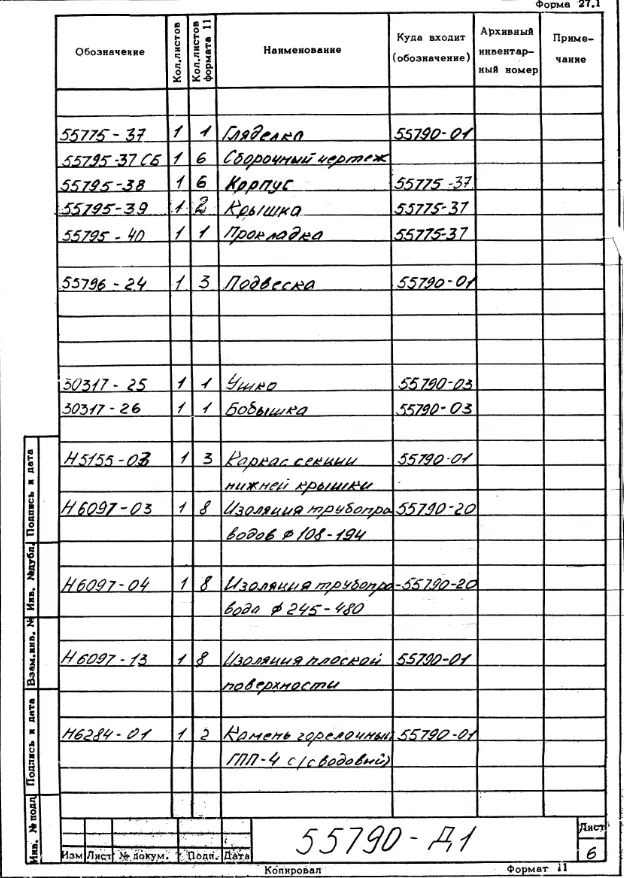 Форма 27.1
Обозначение Кол.листов Кол.листов формата 11 Наименование Куда входит (обозначение) Архивный инвентарный номер Примечание
55775-37 1 1 Гляделка 55790-01
55795-37 СБ 1 6 Сборочный чертеж
55795-38 1 6 Корпус 55775-37
55795-39 1 2 Крышка 55775-37
55795-40 1 1 Прокладка 55775-37
55796-24 1 3 Подвеска 55790-01
30317-25 1 1 Ушко 55790-03
30317-26 1 1 Бобышка 55790-03
Н5155-03 1 3 Каркас секции 55790-01
нижней крышки
Н6097-03 1 8 Изоляция трубопро 55790-20
водов ⌀108-194
Н6097-04 1 8 Изоляция трубопро- 55790-20
вода ⌀245-480
Н6097-13 1 8 Изоляция плоской 55790-01
поверхности
Н6284-01 1 2 Камень горелочный 55790-01
ГПП-4 с/сводовый)
Подпись и дата
Инв. №дубл.
Взам.инв. №
Подпись и дата
Инв. № подл
Изм Лист № докум. Подп. Дата
55790-Д1
Лист
6
Копировал Формат 11